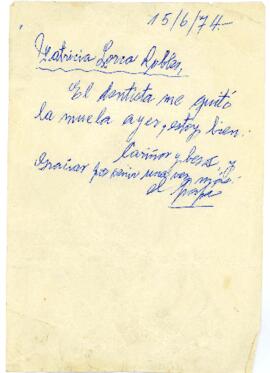 15/6/74.
Patricia Lorca Robles,
El dentista me quitó
la muela ayer, estoy bien.
Cariños y besos y
Gracias por venir una vez más.
el papi